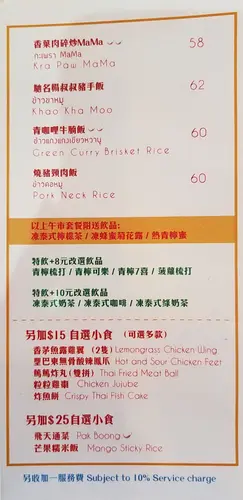 香葉肉碎炒MaMa 58
กะเพรา MaMa
Kra Paw MaMa
馳名楊叔叔豬手飯 62
ข้าวขาหมู
Khao Kha Moo
青咖喱牛腩飯 60
ข้าวแกงแกงเขียวหวานุ
Green Curry Brisket Rice
燒豬頸肉飯 60
ข้าวคอหมู
Pork Neck Rice
以上午市套餐附送飲品:
凍泰式檸檬茶 / 凍蜂蜜菊花露 / 熱青檸蜜
特飲+8元改選飲品:
青檸梳打 / 青檸可樂 / 青檸7喜 / 菠蘿梳打
特飲+10元改選飲品:
凍泰式奶茶 / 凍泰式咖啡 / 凍泰式綠奶茶
另加$15 自選小食 (可選多款)
香茅魚露雞翼 (2隻) Lemongrass Chicken Wing
曼巴東無骨酸辣鳳爪 Hot and Sour Chicken Feet
罵罵炸丸 (雙拼) Thai Fried Meat Ball
粒粒雞棗 Chicken Jujube
炸魚餅 Crispy Thai Fish Cake
另加$25自選小食
飛天通菜 Pak Boong
芒果糯米飯 Mango Sticky Rice
另收加一服務費 Subject to 10% Service charge